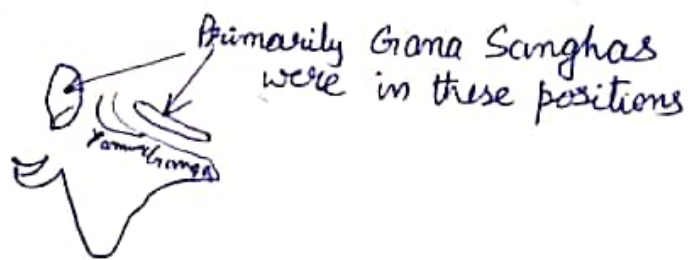 Primarily Gana Sanghas
were in these positions
Yamuna
Ganga